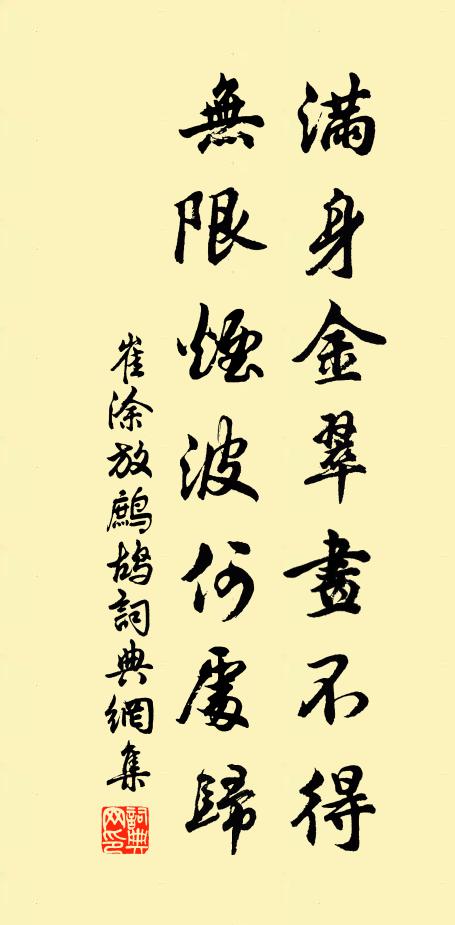 滿身金翠畫不得
無限煙波何處歸
崔涂放鷓鴣詞典網集
詞典网印